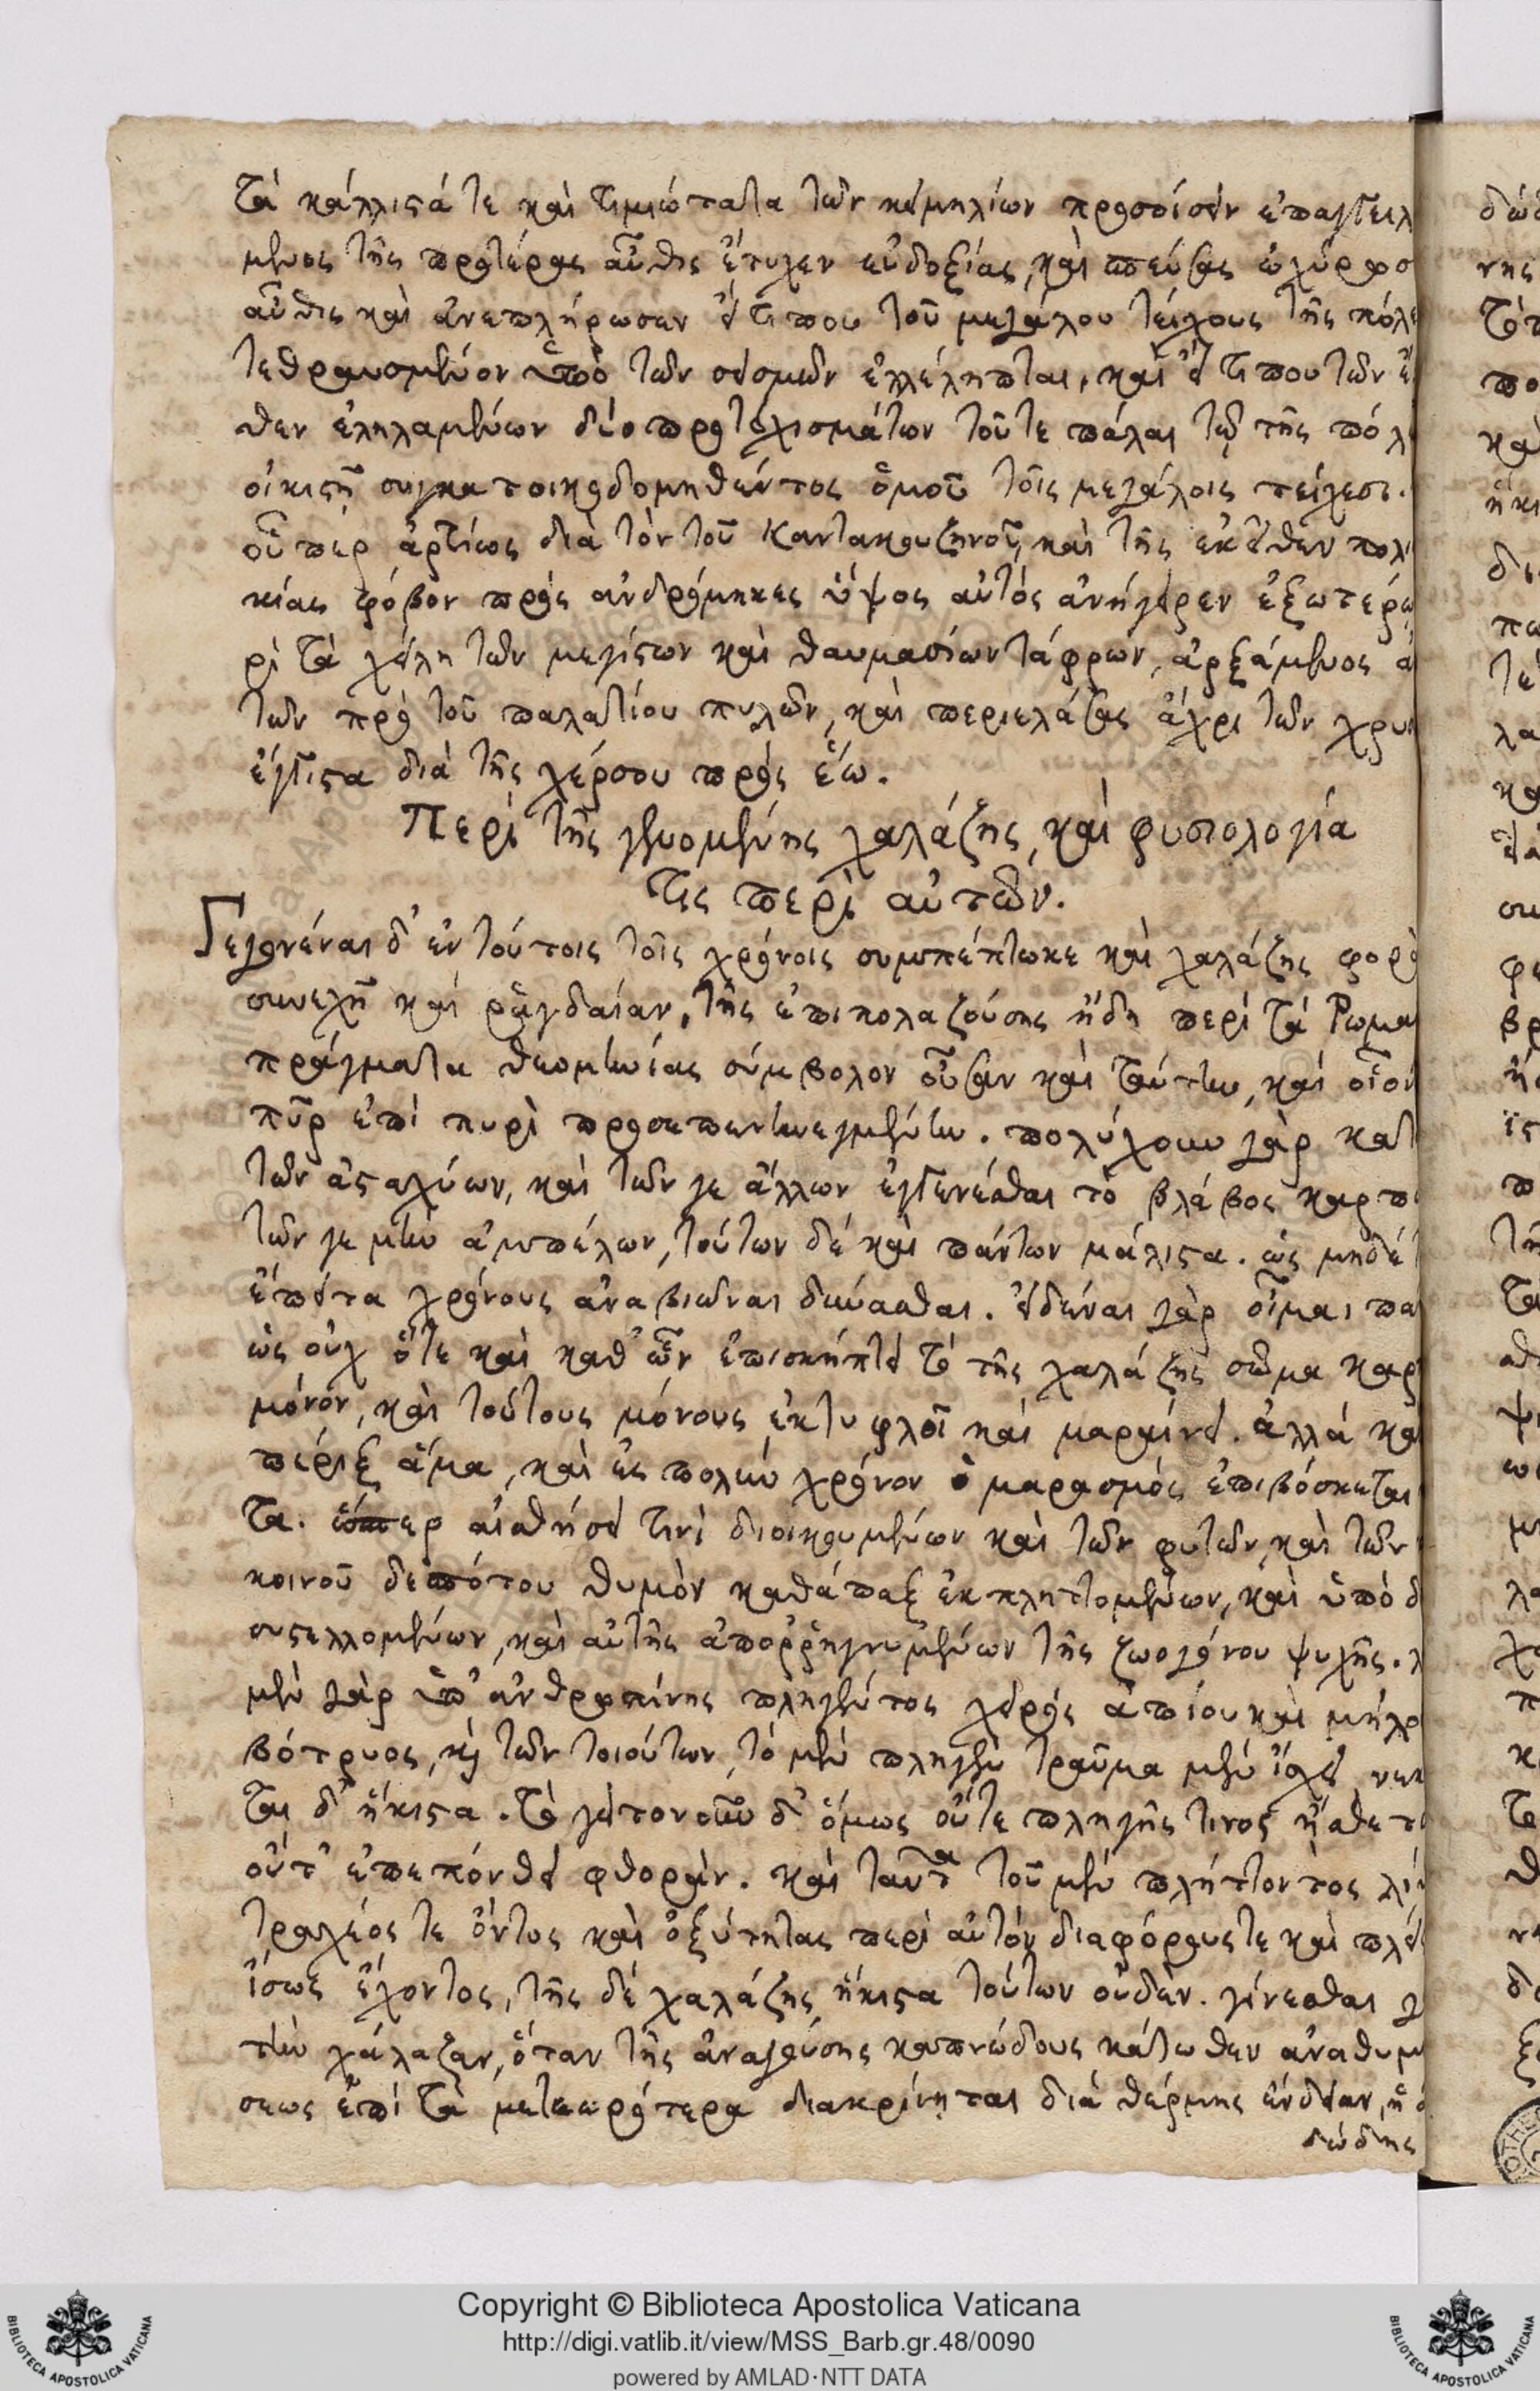 τὰ κάλλιστά τε καὶ τιμιώτατα τῶν κειμηλίων προσοίσειν ἐπαγγειλ
μενος τῆς προτέρας αὖθις ἔτυχεν εὐδοξίας, καὶ
αὖθις καὶ ἀνεπλήρωσεν εἴ τι που τοῦ μεγάλου τείχους τῆς πόλε
τεθραυσμένον ὑπὸ τῶν σεισμῶν ἐλλέλειπται, καὶ εἴ τι που τῶν ἔ
θεν ἐληλαμένων δύο προτειχισμάτων τοῦ τε πάλαι τῷ τῆς πόλε
οἰκιστῇ συγκατοικοδομηθέντος ὁμοῦ τοῖς μεγάλοις τείχεσι.
οὗπερ ἀρτίως διὰ τὸν τοῦ Καντακουζηνοῦ, καὶ τῆς ἐκεῖθεν πολι
κίας φόβον πρὸς ἀνδρόμηκες ὕψος αὐτὸς ἀνήγειρεν ἐξωτέρω
ρὶ τὰ χείλη τῶν μεγίστων καὶ θαυμασίων τάφρων, ἀρξάμενος ἀ
τῶν πρὸ τοῦ παλατίου πυλῶν, καὶ περιελάσας ἄχρι τῶν χρυσ
ἔγγιστα διὰ τῆς χέρσου πρὸς ἕω.
Περὶ τῆς γενομένης χαλάζης, καὶ φυσιολογία
τις περὶ αὐτῶν.
Γεγονέναι δ' ἐν τούτοις τοῖς χρόνοις συμπέπτωκε καὶ χαλάζης φορὰ
συνεχῆ καὶ ῥαγδαίαν, τῆς ἐπιπολαζούσης ἤδη περὶ τὰ Ρωμα
πράγματα θεομηνίας σύμβολον οὖσαν καὶ ταύτην, καὶ οἷον
πῦρ ἐπὶ πυρὶ προσεπενηνεγμένην. πολύχουν γὰρ κατ
τῶν ἀσταχύων, καὶ τῶν γε ἄλλων ἐγγενέσθαι τὸ βλάβος καρπ
τῶν γε μὴν ἀμπέλων, τούτων δὲ καὶ πάντων μάλιστα. ὡς μηδέ
ἔπειτα χρόνους ἀναβιῶναι δύνασθαι. εἰδέναι γὰρ οἶμαι πα
ὡς οὐχ ὅτε καὶ καθ' ὧν ἐπισκήπτει τὸ τῆς χαλάζης σῶμα καρ
μόνον, καὶ τούτους μόνους ἐκτυφλοῖ καὶ μαραίνει. ἀλλὰ κα
πέριξ ἅμα, καὶ εἰς πολὺν χρόνον ὁ μαρασμὸς ἐπιβόσκεται
τα. ὥσπερ αἰσθήσει τινὶ διοικουμένων καὶ τῶν φυτῶν, καὶ τῶν
κοινοῦ δεσπότου θυμὸν καθάπαξ ἐκπληττομένων, καὶ ὑπὸ δ
συστελλομένων, καὶ αὐτῆς ἀποῤῥηγνυμένων τῆς ζωογόνου ψυχῆς.
μὲν γὰρ ὑπ' ἀνθρωπίνης πληγέντος χειρὸς ἀπίου καὶ μήλο
βότρυος, καὶ τῶν τοιούτων, τὸ μὲν πληγὲν τραῦμα μὲν ἴσχει, νεκ
ται δ' ἥκιστα. τὸ γειτονοῦν δ' ὅμως οὔτε πληγῆς τινος ᾔσθετο
οὔτ' ἐπεπόνθει φθοράν. καὶ ταῦτα τοῦ μὲν πλήττοντος λί
τραχέος τε ὄντος καὶ ὀξύτητας περὶ αὐτὸν διαφόρους τε καὶ πλεί
ἴσως ἔχοντος, τῆς δὲ χαλάζης ἥκιστα τούτων οὐδέν. γίνεσθαι γ
τὴν χάλαζαν, ὅταν τῆς ἀναγούσης καπνώδους κάτωθεν ἀναθυμι
σεως ἐπὶ τὰ μετεωρότερα διακρίνηται διὰ θέρμης ἔνδειαν, ἡ
δώδης